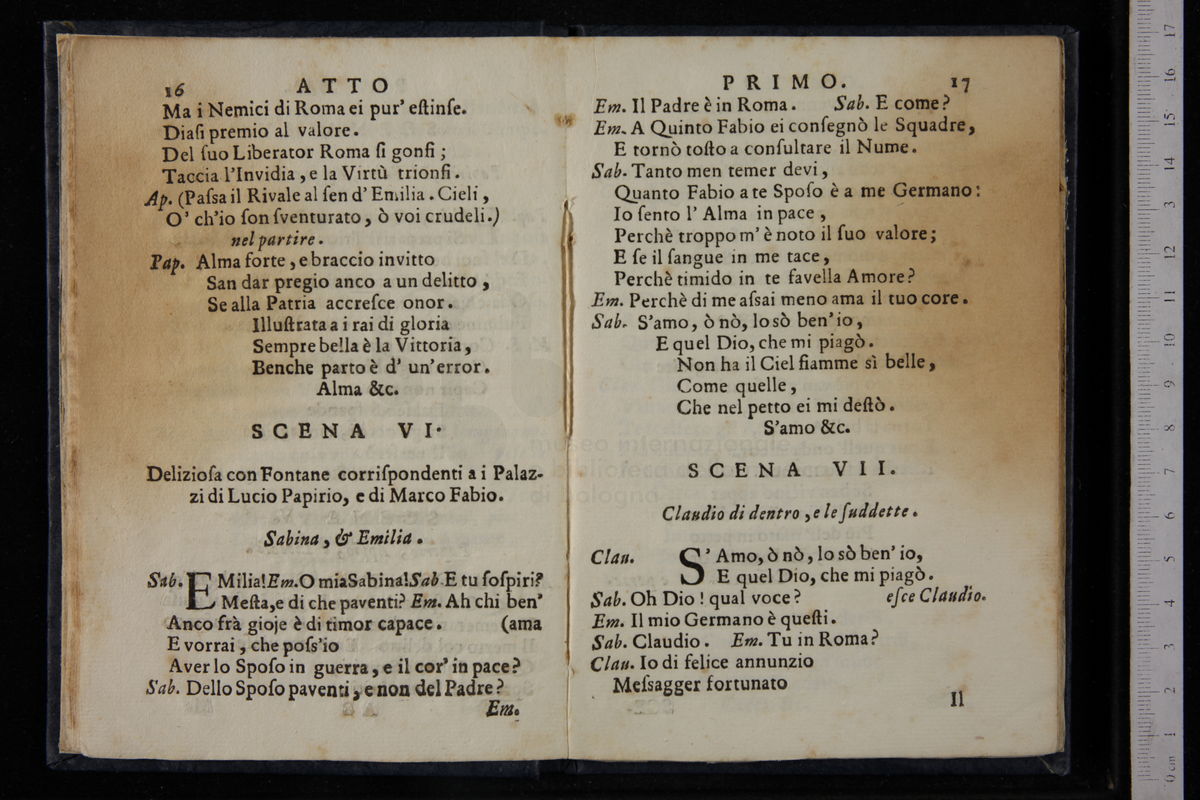 16 ATTO
Ma i Nemici di Roma ei pur' eſtinſe.
Diaſi premio al valore.
Del ſuo Liberator Roma ſi gonfi ;
Taccia l'Invidia , e la Virtù trionfi .
Ap. (Paſsa il Rivale al ſen d' Emilia . Cieli ,
O' ch'io ſon ſventurato , ò voi crudeli.)
nel partire .
Pap. Alma forte , e braccio invitto
San dar pregio anco a un delitto ,
Se alla Patria accreſce onor .
Illuſtrata a i rai di gloria
Sempre bella è la Vittoria ,
Benche parto è d' un'error .
Alma &c.
SCENA VI.
Delizioſa con Fontane corriſpondenti a i Palaz-
zi di Lucio Papirio, e di Marco Fabio.
Sabina , & Emilia .
Sab. EMilia! Em. O mia Sabina! Sab. E tu ſoſpiri?
Meſta, e di che paventi? Em. Ah chi ben'
Anco frà gioje è di timor capace . (ama
E vorrai , che poſs'io
Aver lo Spoſo in guerra , e il cor' in pace ?
Sab. Dello Spoſo paventi , e non del Padre ?
Em.
PRIMO. 17
Em. Il Padre è in Roma . Sab. E come ?
Em. A Quinto Fabio ei conſegnò le Squadre,
E tornò toſto a conſultare il Nume .
Sab. Tanto men temer devi ,
Quanto Fabio a te Spoſo è a me Germano :
Io ſento l' Alma in pace ,
Perchè troppo m' è noto il ſuo valore ;
E ſe il ſangue in me tace ,
Perchè timido in te favella Amore ?
Em. Perchè di me aſsai meno ama il tuo core .
Sab. S'amo , ò nò, lo sò ben' io ,
E quel Dio, che mi piagò .
Non ha il Ciel fiamme sì belle ,
Come quelle ,
Che nel petto ei mi deſtò .
S'amo &c.
SCENA VII.
Claudio di dentro , e le ſuddette .
Clau. S' Amo, ò nò , lo sò ben' io,
E quel Dio, che mi piagò .
Sab. Oh Dio ! qual voce ? eſce Claudio.
Em. Il mio Germano è queſti .
Sab. Claudio . Em. Tu in Roma ?
Clau. Io di felice annunzio
Meſsagger fortunato
Il
museo internazionale
e biblioteca
di bologna